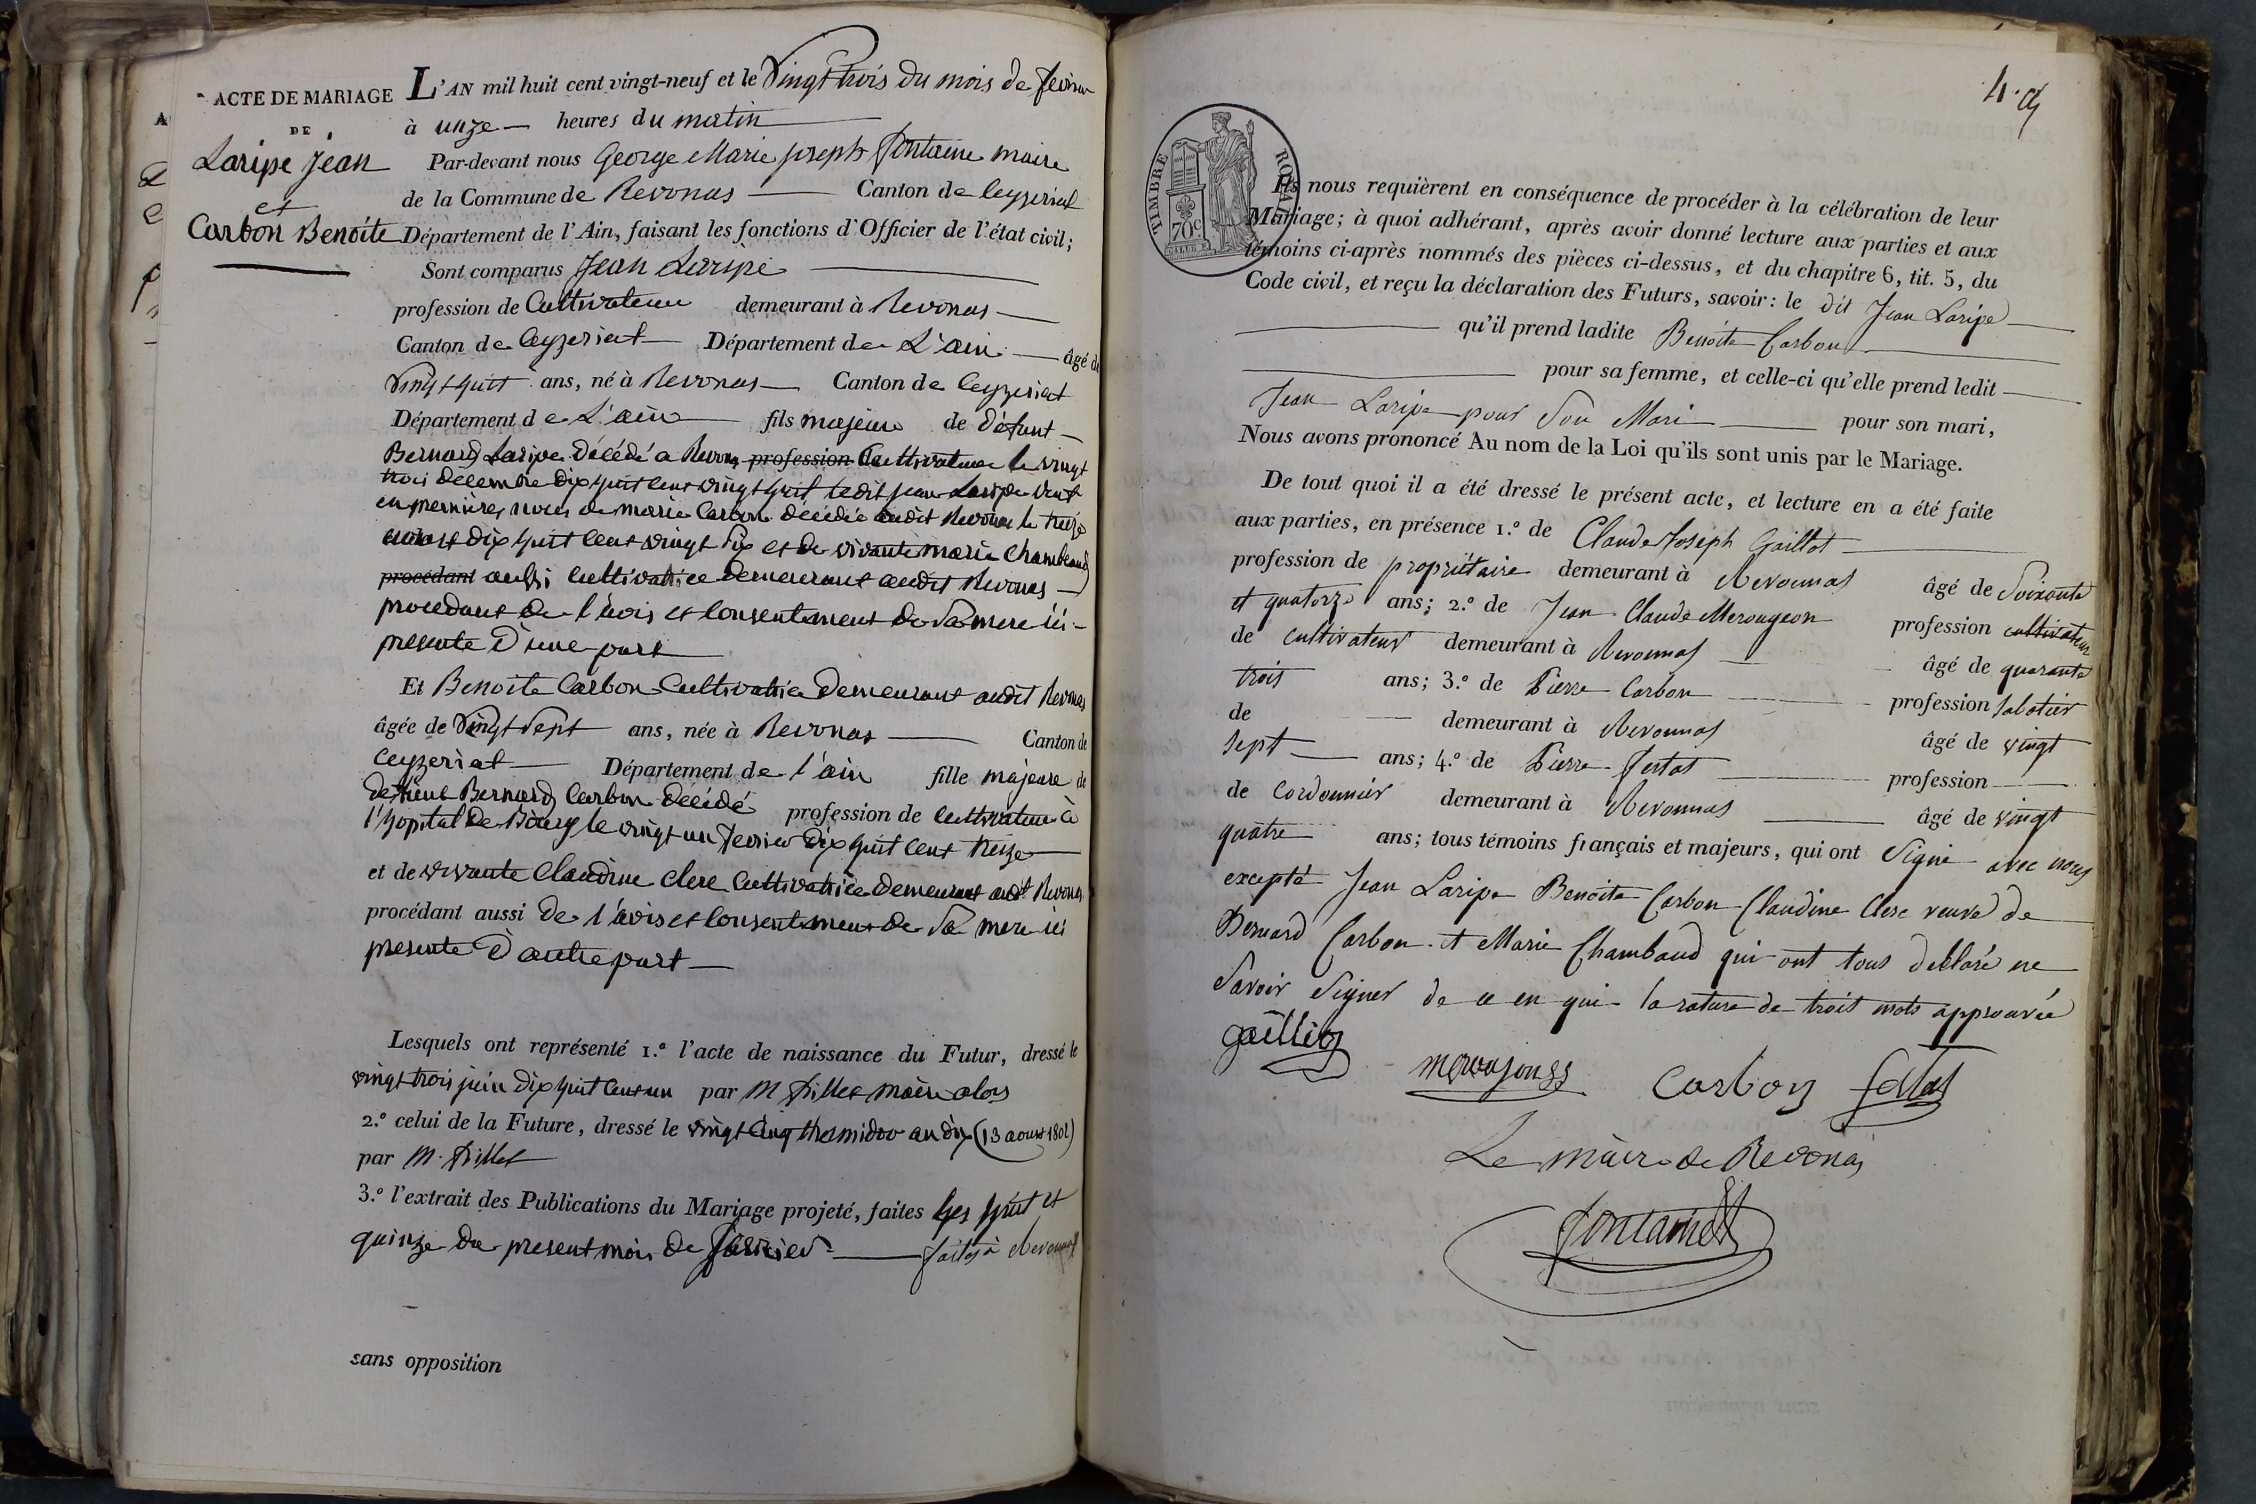 ACTE DE MARIAGE
DE
Laripe Jean
et
Carbon Benoite
L'AN mil huit cent vingt-neuf et le vingt trois du mois de fevrier
à unze heures du matin
Par-devant nous George Marie Joseph fontaine maire
de la Commune de Revonas Canton de Ceyzeriat
Département de l'Ain, faisant les fonctions d'Officier de l'état civil;
Sont comparus Jean Laripe
profession de Cultivateur demeurant à Revonas
Canton de Ceyzeriat Département de L'ain âgé de
vingt huit ans, né à Revonas Canton de Ceyzeriat
Département de L'ain fils majeur de défunt
Bernard Laripe décédé a Revonas profession Cultivateur le vingt
trois decembre dix huit cent vingt huit ledit jean Laripe veuf
en premières noces de marie Carbon décédée audit Revonas le treize
dix huit cent vingt six et de vivante marie Chambaud
procédant aussi Cultivatrice demeurant audit Revonas
procedant de l'avis et Consentement de Sa mere ici
presente d'une part
Et Benoite Carbon Cultivatrice demeurant audit Revonas
âgée de vingt Sept ans, née à Revonas Canton de
Ceyzeriat Département de l'ain fille majeure de
défunt Bernard Carbon décédé profession de Cultivateur à
l'hopital de Bourg le vingt un fevrier dix huit cent treize
et de vivante Claudine Clerc Cultivatrice demeurant audit Revonas
procédant aussi de l'avis et Consentement de Sa mere ici
presente d'autre part
Lesquels ont représenté 1.º l'acte de naissance du Futur, dressé le
vingt trois juin dix huit cent un par M Pillet maire alors
2.º celui de la Future, dressé le vingt cinq thermidor an dix (13 aoust 1802)
par M. Pillet
3.º l'extrait des Publications du Mariage projeté, faites les huit et
quinze du present mois de fevrier faites à Revonnas
sans opposition
TIMBRE ROYAL
70c
Ils nous requièrent en conséquence de procéder à la célébration de leur
Mariage; à quoi adhérant, après avoir donné lecture aux parties et aux
témoins ci-après nommés des pièces ci-dessus, et du chapitre 6, tit. 5, du
Code civil, et reçu la déclaration des Futurs, savoir: le dit Jean Laripe
qu'il prend ladite Benoite Carbon
pour sa femme, et celle-ci qu'elle prend ledit
Jean Laripe pour Son Mari pour son mari,
Nous avons prononcé Au nom de la Loi qu'ils sont unis par le Mariage.
De tout quoi il a été dressé le présent acte, et lecture en a été faite
aux parties, en présence 1.º de Claude Joseph Gaillot
profession de propriétaire demeurant à Revonnas âgé de Soixante
et quatorze ans; 2.º de Jean Claude Merougeon profession cultivateur
de cultivateur demeurant à Revonnas âgé de quarante
trois ans; 3.º de Pierre Carbon profession Sabotier
de demeurant à Revonnas âgé de vingt
sept ans; 4.º de Pierre fertat profession
de Cordonnier demeurant à Revonnas âgé de vingt
quatre ans; tous témoins français et majeurs, qui ont Signé avec nous
excepté Jean Laripe Benoite Carbon Claudine Clerc veuve de
Bernard Carbon et Marie Chambaud qui ont tous déclaré ne
Savoir Signer de ce en qui la rature de trois mots approuvée
Carbon
Le maire de Revonas
fontaine